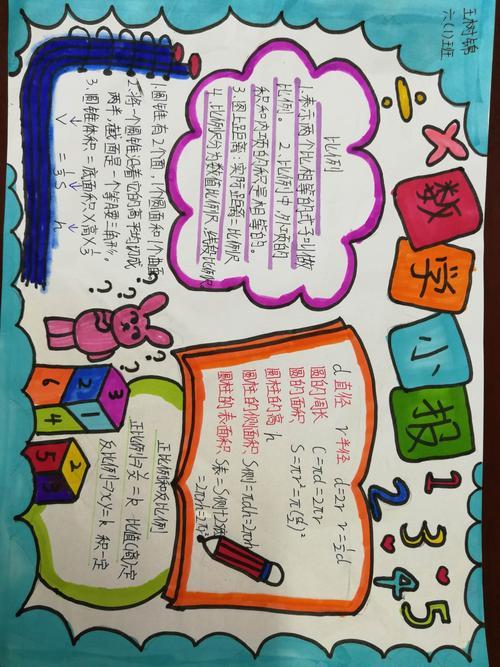 王树锦
六(1)班
数学小报
比例
1.表示两个比相等的式子叫做
比例。 2.比例中,外项的
积和内项的积是相等的。
3.图上距离:实际距离=比例尺
4.比例尺分为数值比例尺,线段比例尺
1.圆锥有2个面,1个圆面积1个曲面
2.将一个圆锥沿着它的高平均切成
两半,截面是一个等腰三角形。
3.圆锥体积=底面积×高×1/3
V = 1/3 S h
d直径 r半径 d=2r r=1/2d
圆的周长 C=πd=2πr
圆的面积 S=πr²=π(d/2)²
圆柱的高 h
圆柱的侧面积 S侧=πdh=2πrh
圆柱的表面积 S表=S侧+2
=2πrh+2πr²
正比例和反比例
正比例→ =k 比值(商)一定
反比例→xy=k 积一定
1 2 3 4 5
? ? ? ? ?
3
2 1
6 4
2
5 3